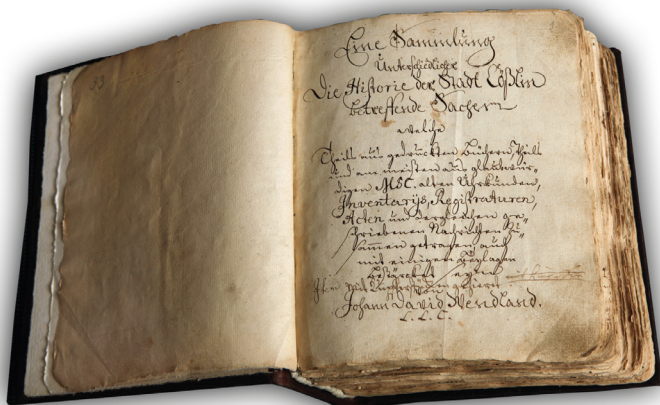 33
Eine Sammlung
Unterschiedlicher
Die Historie der Stadt Cößlin
betreffende Sachen
welche
Theils aus gedruckten Büchern, Theils
und am meisten aus glaubwür-
digen MSC. alten Uhrkunden,
Inventarijs, Registraturen,
Acten und dergleichen ge-
schriebenen Nachrichten zu-
sammen getragen, auch
mit einigen Beylagen
bestärcket
von
Johann David Wendland.
L. L. C.